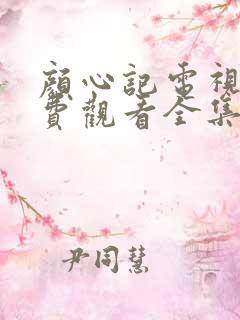 顏心記電視
費觀看全集
尹同慧